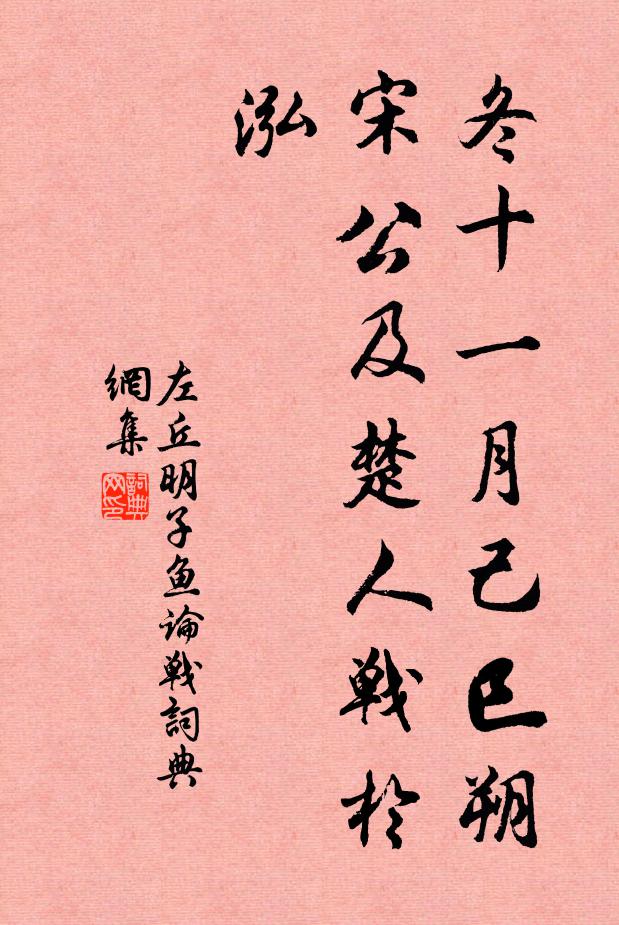 冬十一月己巳朔
宋公及楚人戦於
泓
左丘明子鱼論戦詞典
網集
詞典
网印